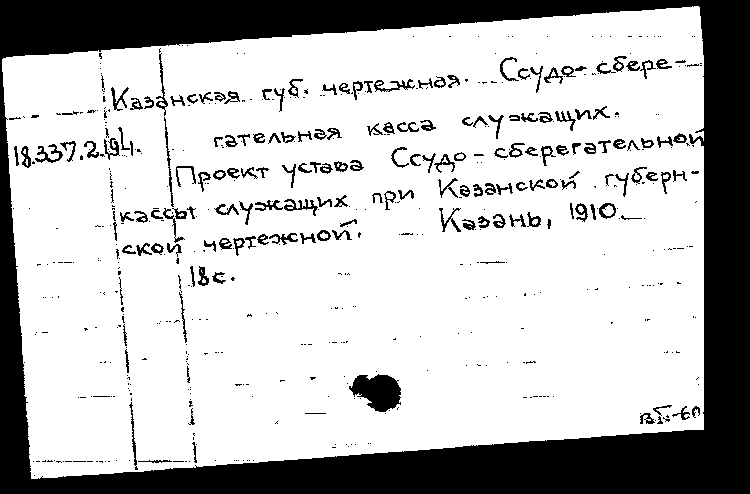 Казанская губ. чертежная. Ссудо-сбере-
гательная касса служащих.
18.337.2.194.
Проект устава Ссудо-сберегательной
кассы служащих при Казанской губерн-
ской чертежной. Казань, 1910.
18с.